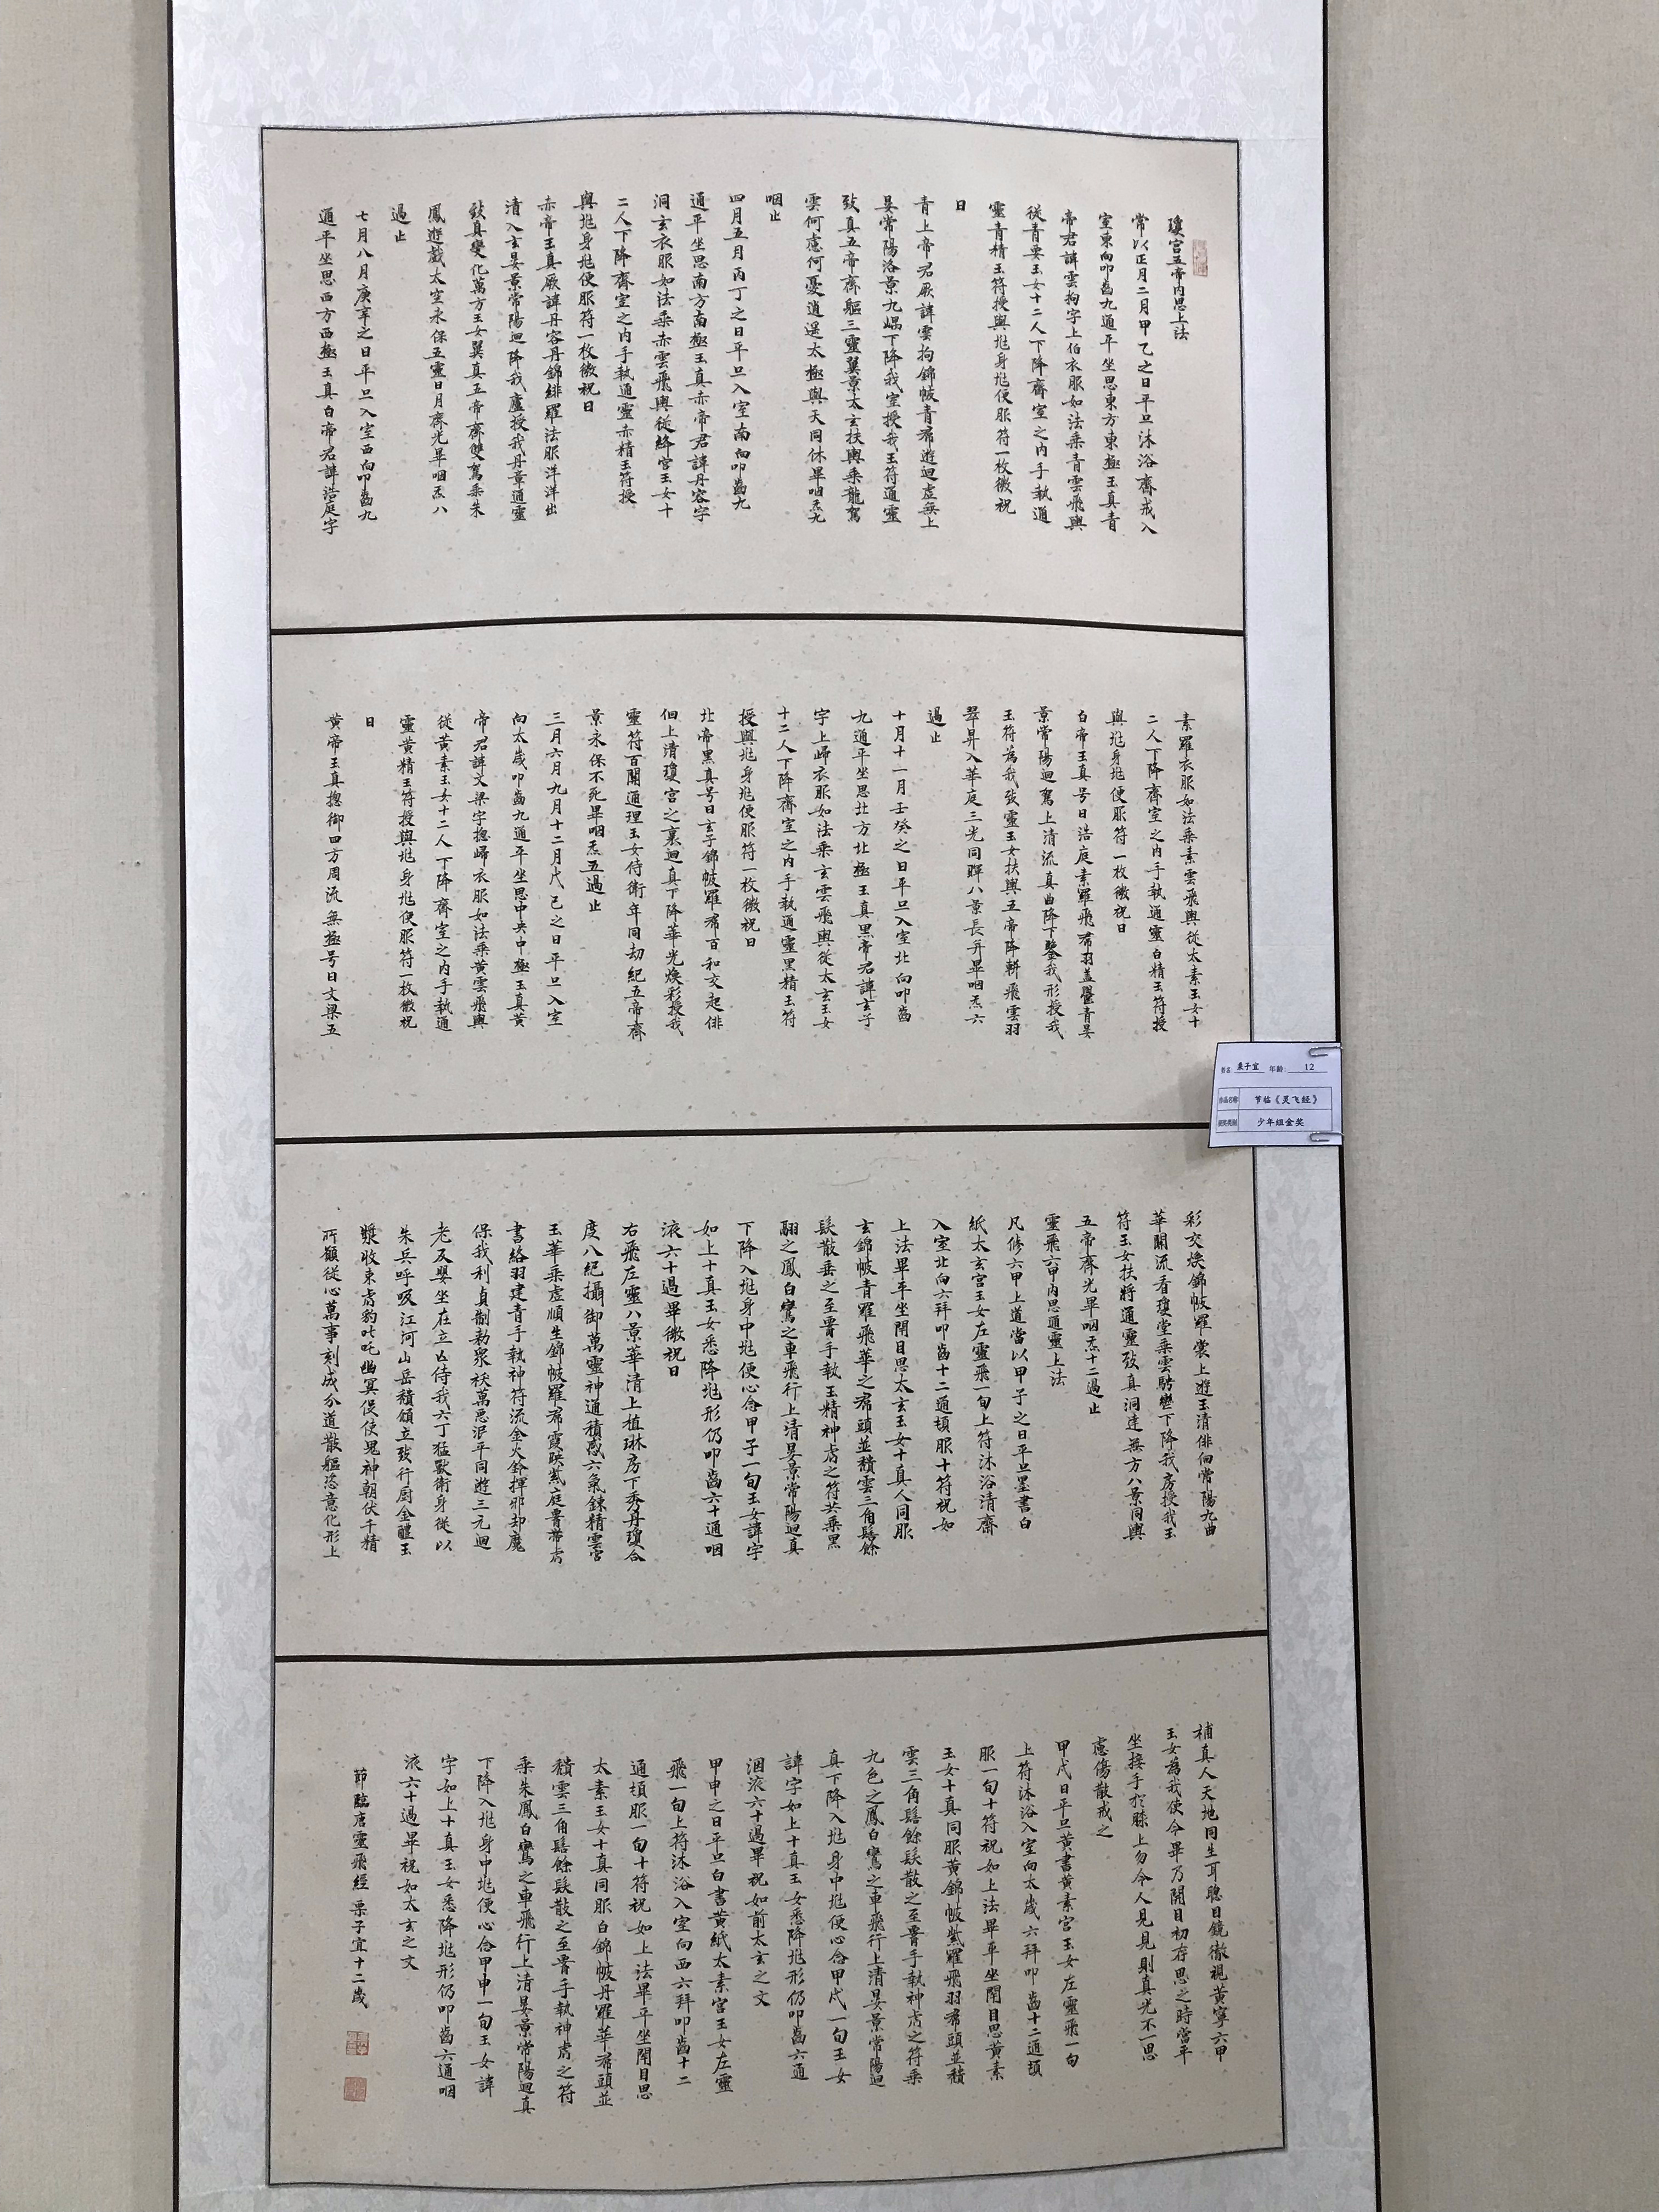 瓊宮五帝內思上法
常以正月二月甲乙之日平旦沐浴齋戒入
室東向叩齒九通平坐思東方東極玉真青
帝君諱雲拘字上伯衣服如法乘青雲飛輿
從青要玉女十二人下降齋室之內手執通
靈青精玉符授與兆身兆便服符一枚微祝
曰
青上帝君厥諱雲拘錦帔青裙遊迴虛無上
晏常陽洛景九嵎下降我室授我玉符通靈
致真五帝齊軀三靈翼景太玄扶輿乘龍駕
雲何慮何憂逍遙太極與天同休畢咽炁九
咽止
四月五月丙丁之日平旦入室南向叩齒九
通平坐思南方南極玉真赤帝君諱丹容字
洞玄衣服如法乘赤雲飛輿從絳宮玉女十
二人下降齋室之內手執通靈赤精玉符授
與兆身兆便服符一枚微祝曰
赤帝玉真厥諱丹容丹錦緋羅法服洋洋出
清入玄晏景常陽迴降我廬授我丹章通靈
致真變化萬方玉女翼真五帝齊雙駕乘朱
鳳遊戲太空永保五靈日月齊光畢咽炁八
過止
七月八月庚辛之日平旦入室西向叩齒九
通平坐思西方西極玉真白帝君諱浩庭字
素羅衣服如法乘素雲飛輿從太素玉女十
二人下降齋室之內手執通靈白精玉符授
與兆身兆便服符一枚微祝曰
白帝玉真号曰浩庭素羅飛裙羽蓋鬱青晏
景常陽迴駕上清流真曲降下鑒我形授我
玉符為我致靈玉女扶輿五帝降軿飛雲羽
翠昇入華庭三光同暉八景長并畢咽炁六
過止
十月十一月壬癸之日平旦入室北向叩齒
九通平坐思北方北極玉真黑帝君諱玄子
字上歸衣服如法乘玄雲飛輿從太玄玉女
十二人下降齋室之內手執通靈黑精玉符
授與兆身兆便服符一枚微祝曰
北帝黑真号曰玄子錦帔羅裙百和交起俳
佪上清瓊宮之裏迴真下降華光煥彩授我
靈符百關通理玉女侍衛年同劫紀五帝齊
景永保不死畢咽炁五過止
三月六月九月十二月戊己之日平旦入室
向太歲叩齒九通平坐思中央中極玉真黃
帝君諱文梁字揔歸衣服如法乘黃雲飛輿
從黃素玉女十二人下降齋室之內手執通
靈黃精玉符授與兆身兆便服符一枚微祝
曰
黃帝玉真揔御四方周流無極号曰文梁五
彩交煥錦帔羅裳上遊玉清俳佪常陽九曲
華關流看瓊堂乘雲騁轡下降我房授我玉
符玉女扶將通靈致真洞達無方八景同輿
五帝齊光畢咽炁十二過止
靈飛六甲內思通靈上法
凡修六甲上道當以甲子之日平旦墨書白
紙太玄宮玉女左靈飛一旬上符沐浴清齋
入室北向六拜叩齒十二通頓服十符祝如
上法畢平坐閉目思太玄玉女十真人同服
玄錦帔青羅飛華之裙頭並穨雲三角髻餘
髮散垂之至臀手執玉精神虎之符共乘黑
翮之鳳白鸞之車飛行上清晏景常陽迴真
下降入兆身中兆便心念甲子一旬玉女諱字
如上十真玉女悉降兆形仍叩齒六十通咽
液六十過畢微祝曰
右飛左靈八景華清上植琳房下秀丹瓊合
度八紀攝御萬靈神通積感六氣鍊精雲宮
玉華乘虛順生錦帔羅裙霞映紫庭臀帶虎
書絡羽建青手執神符流金火鈴揮邪却魔
保我利貞制勑衆袄萬惡泯平同遊三元迴
老反嬰坐在立亡侍我六丁猛獸衛身從以
朱兵呼吸江河山岳積頹立致行廚金醴玉
漿收束虎豹叱吒幽冥役使鬼神朝伏千精
所願從心萬事刻成分道散軀恣意化形上
補真人天地同生耳聰目鏡徹視黃寧六甲
玉女為我使令畢乃開目初存思之時當平
坐接手於膝上勿令人見見則真光不一思
慮傷散戒之
甲戌日平旦黃書黃素宮玉女左靈飛一旬
上符沐浴入室向太歲六拜叩齒十二通頓
服一旬十符祝如上法畢平坐閉目思黃素
玉女十真同服黃錦帔紫羅飛羽裙頭並穨
雲三角髻餘髮散之至臀手執神虎之符乘
九色之鳳白鸞之車飛行上清晏景常陽迴
真下降入兆身中兆便心念甲戌一旬玉女
諱字如上十真玉女悉降兆形仍叩齒六通
洇液六十過畢祝如前太玄之文
甲申之日平旦白書黃紙太素宮玉女左靈
飛一旬上符沐浴入室向西六拜叩齒十二
通頓服一旬十符祝如上法畢平坐閉目思
太素玉女十真同服白錦帔丹羅華裙頭並
穨雲三角髻餘髮散之至臀手執神虎之符
乘朱鳳白鸞之車飛行上清晏景常陽迴真
下降入兆身中兆便心念甲申一旬玉女諱
字如上十真玉女悉降兆形仍叩齒六通咽
液六十過畢祝如太玄之文
節臨唐靈飛經 栗子宜十二歲
姓名 栗子宜 年龄: 12
作品名称 节临《灵飞经》
获奖类别 少年组金奖